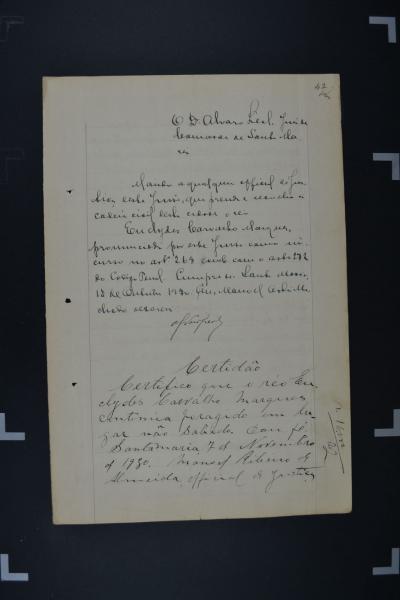 42
O Dr Alvaro Leal, Juiz da
Comarca de Santa Ma-
ria
Mando a qualquer official de Jus-
tiça deste Juizo, que prenda e recolha a
cadeia civil desta cidade o réo
Euclydes Carvalho Marques,
pronunciado por este Juizo como in-
curso no art 268 comb com o art 272
do Codigo Penal. Cumpra-se. Santa Maria,
18 de Outubro 1930. Eu, Manoel
escrevi.
Certidão
Certifico que o réo Eu-
clydes Carvalho Marques
continua foragido em lu-
gar não Sabido. Dou fé.
Santa Maria 7 de Novembro
d 1930. Manoel Ribeiro de
Almeida, official de Justiça